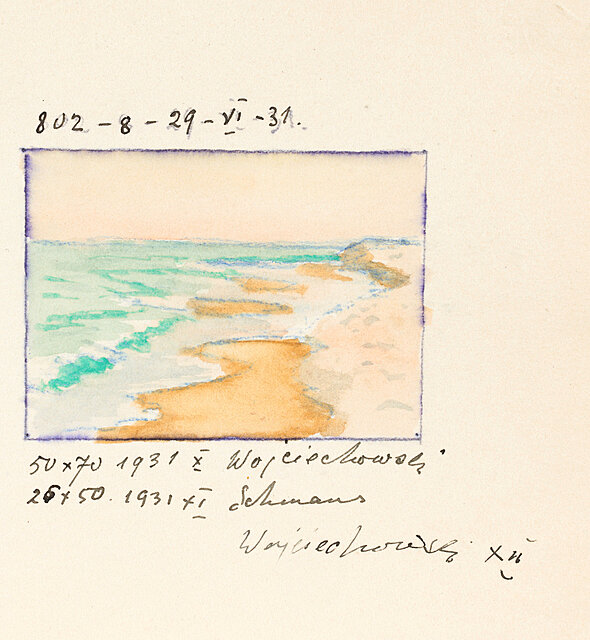 802 - 8 - 29 - VI - 31.
50x70 1931 X Wojciechowski
26x50. 1931 XI Schmans
Wojciechowski XII